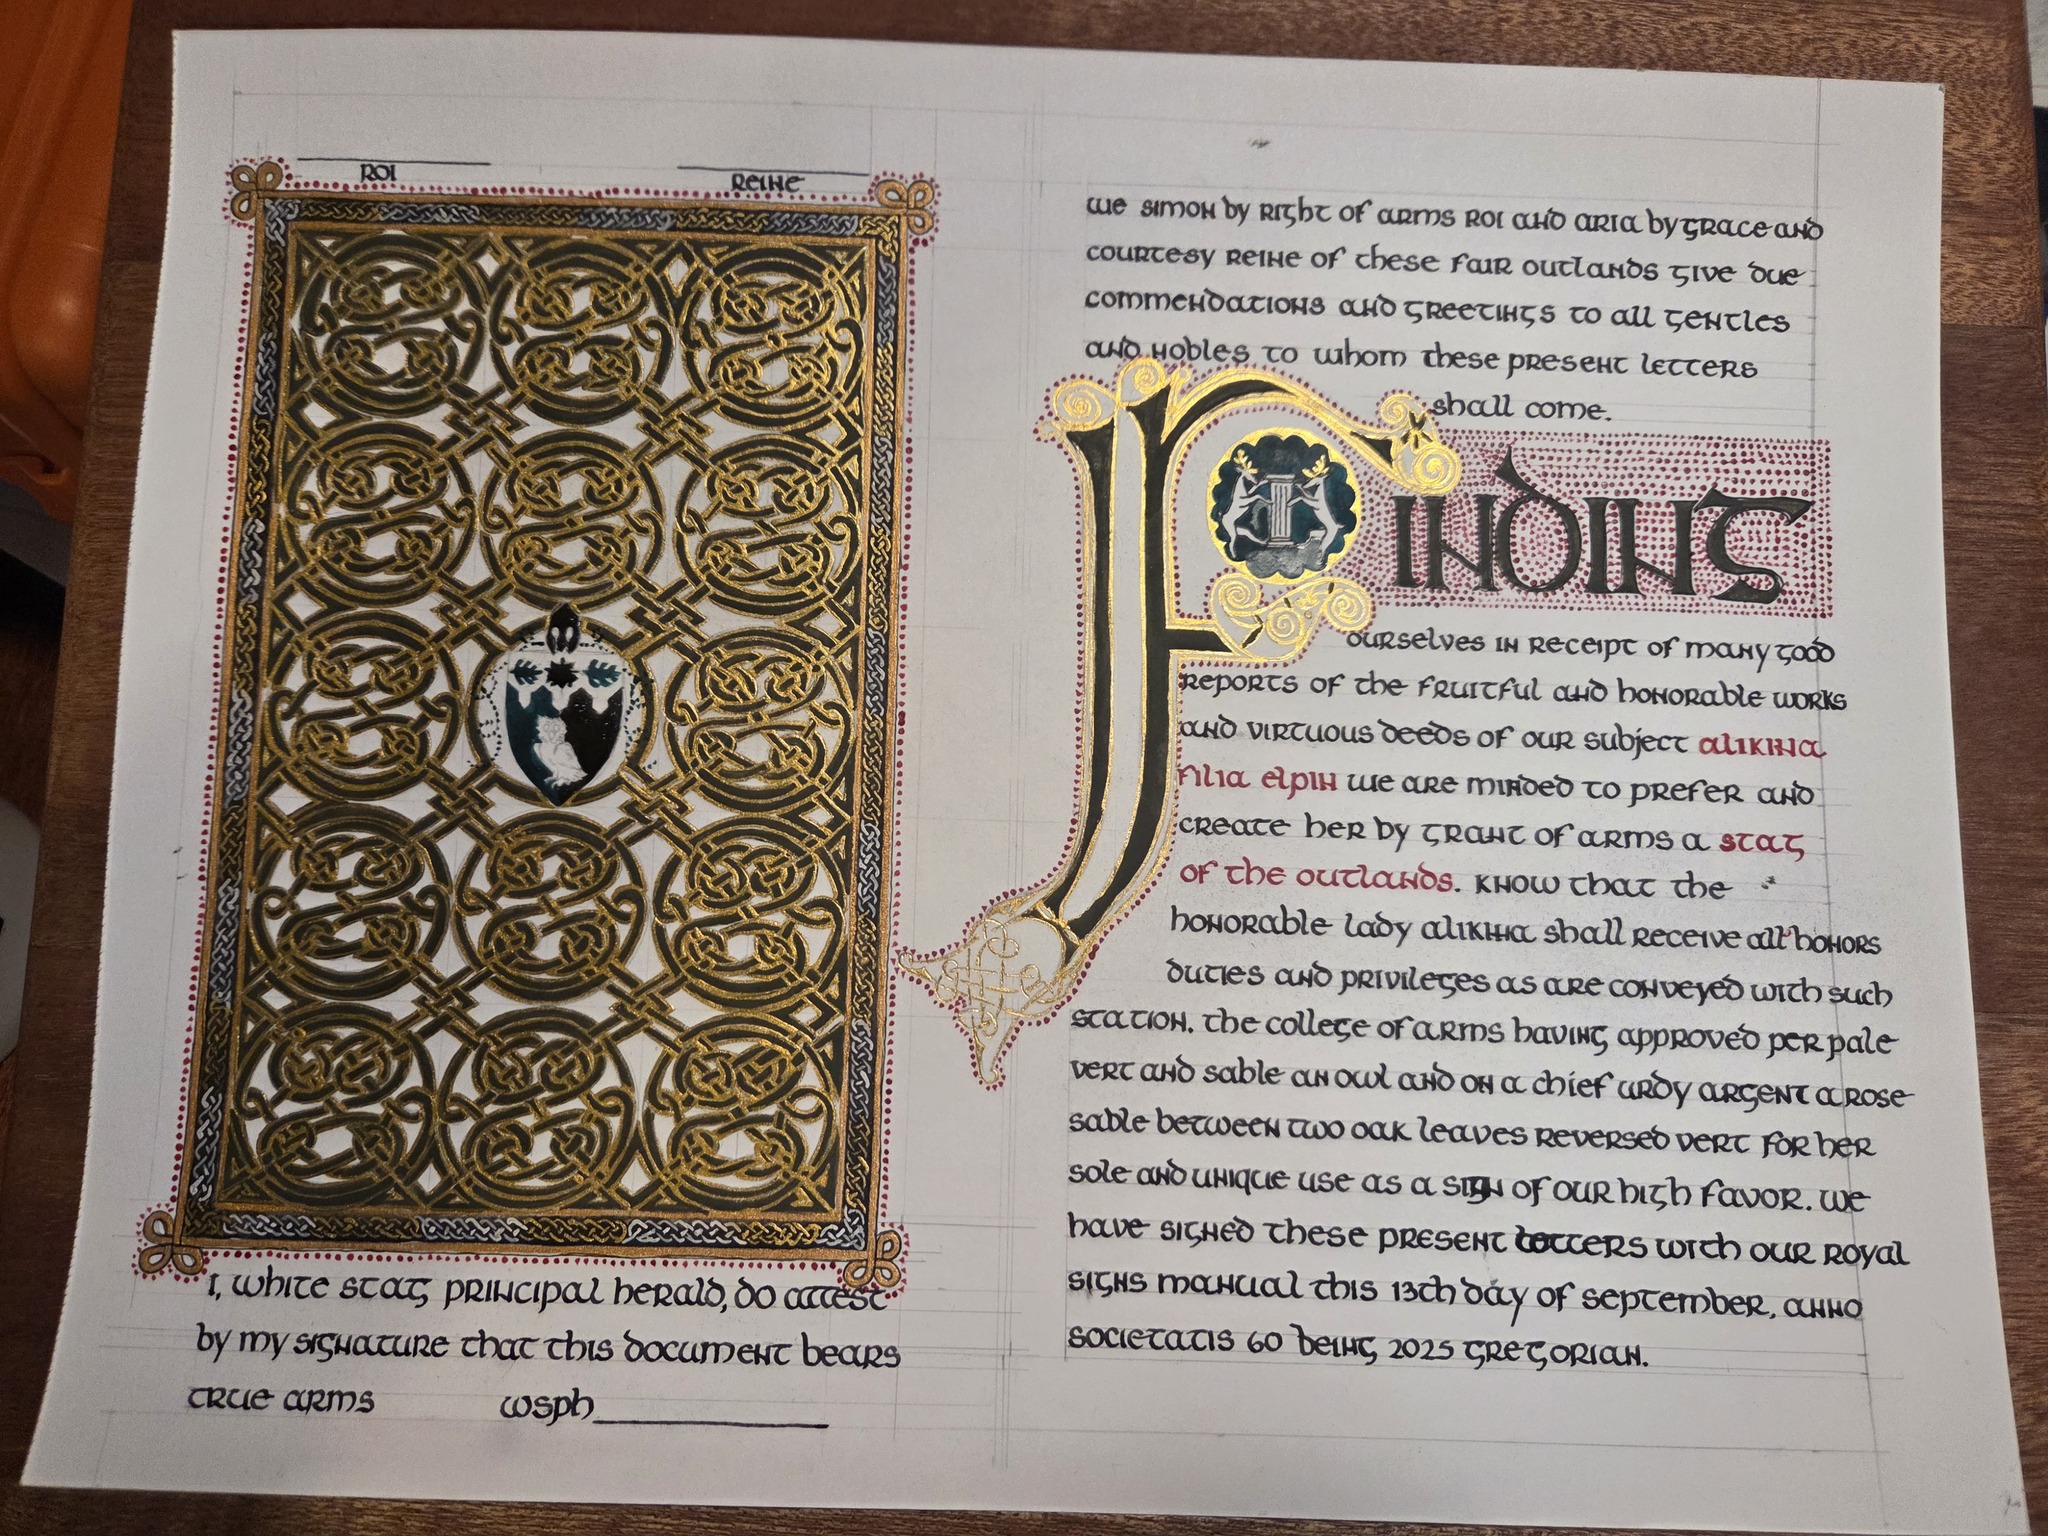 ROI
REINE
we simon by right of arms roi and aria by grace and
courtesy reine of these fair outlands give due
commendations and greetings to all gentles
and nobles to whom these present letters
shall come.
FINDING
ourselves in receipt of many good
reports of the fruitful and honorable works
and virtuous deeds of our subject alikina
filia elpin we are minded to prefer and
create her by grant of arms a stag
of the outlands. know that the
honorable lady alikina shall receive all honors
duties and privileges as are conveyed with such
station. the college of arms having approved per pale
vert and sable an owl and on a chief urdy argent a rose
sable between two oak leaves reversed vert for her
sole and unique use as a sign of our high favor. we
have signed these present letters with our royal
signs manual this 13th day of september, anno
societatis 60 being 2025 gregorian.
I, white stag principal herald, do attest
by my signature that this document bears
true arms wsph